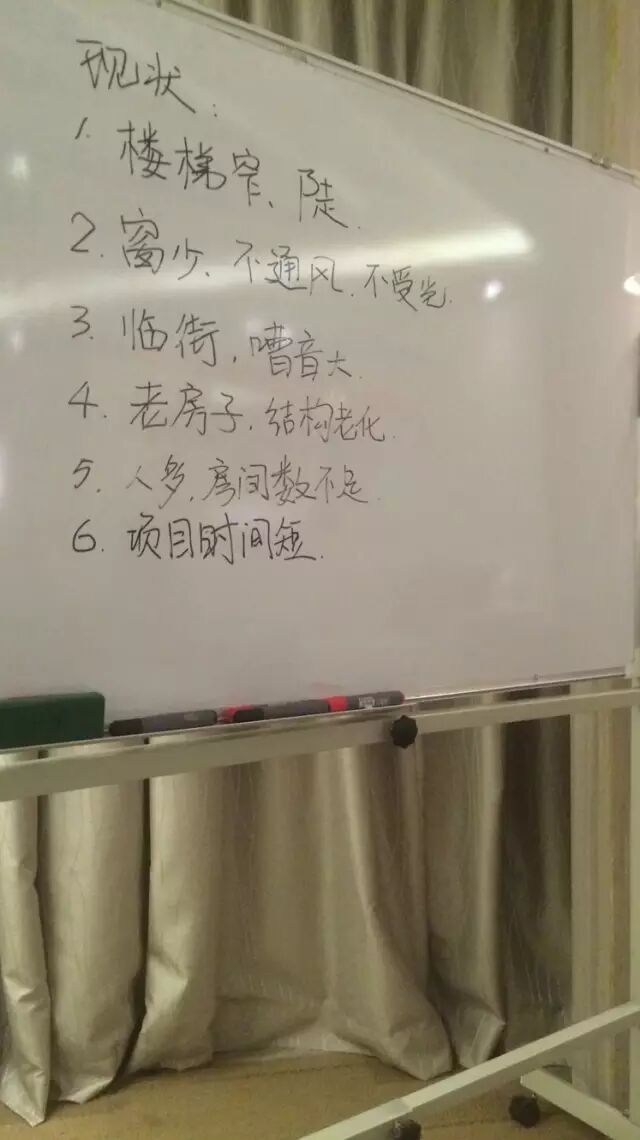 现状：
1. 楼梯窄、陡.
2. 窗少、不通风.不受光.
3. 临街，嘈音大.
4. 老房子，结构老化.
5. 人多，房间数不足.
6. 项目时间短.